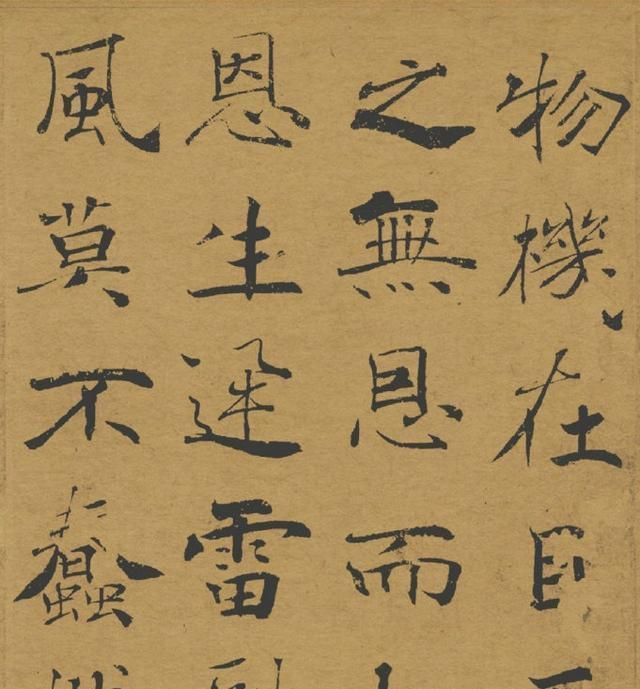 物機在目
之無恩而
恩生迅雷
風莫不蠢